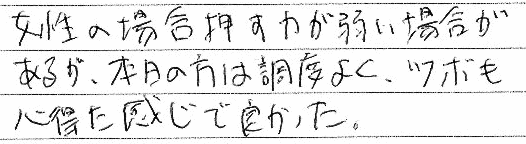 女性の場合押す力が弱い場合が
あるが、本日の方は調度よく、ツボも
心得た感じで良かった。